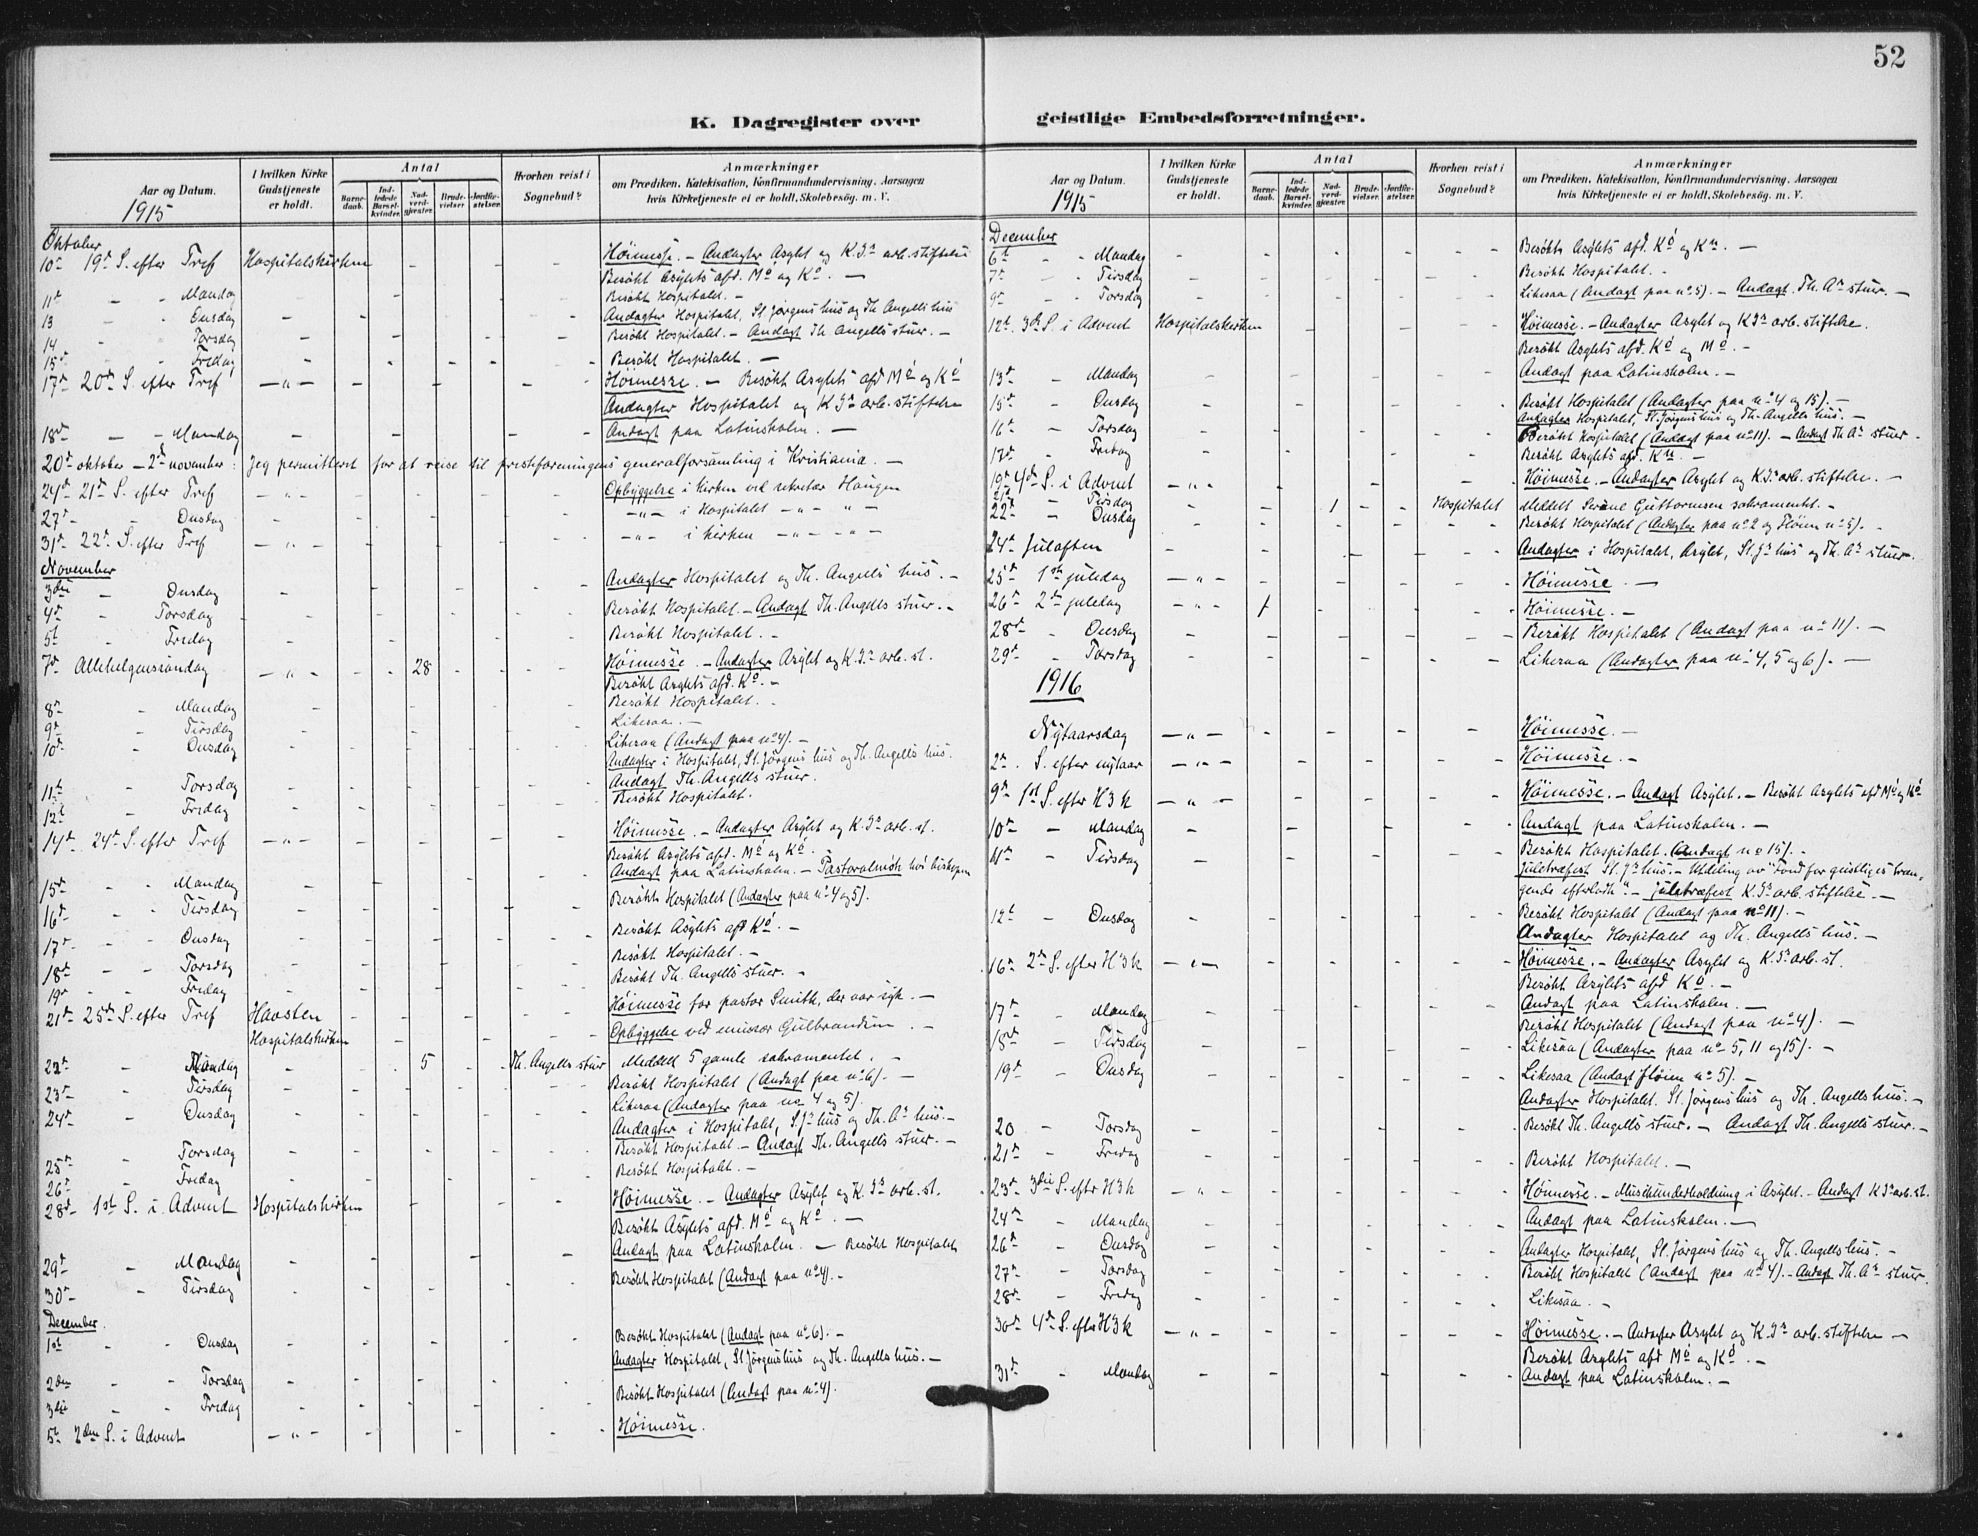 52
K. Dagregister over geistlige Embedsforretninger.
Aar og Datum.
1915
I hvilken Kirke Gudstjeneste er holdt.
Antal
Barnedaab.
Indledede Barselkvinder.
Nadverdgjester.
Brudevielser.
Jordfæstelser.
Hvorhen reist i Sognebud?
Anmærkninger
om Prædiken, Katekisation, Konfirmandundervisning, Aarsagen
hvis Kirketjeneste ei er holdt, Skolebesøg. m. V.
Oktober
10de 19de S. efter Tref Hospitalskirken Höimesse. – Andagter Asylet og K.Js arb. stiftelse
Besökt Asylets afd. Mö og Kö. –
11te – – Mandag Besökt Hospitalet. –
13 – – Onsdag Andagter Hospitalet, St. Jörgens hus og Th. Angells hus
14 – Torsdag Besökt Hospitalet. – Andagt Th. Angells stuer. –
15de – Fredag Besökt Hospitalet. –
17de 20de S. efter Tref – " – Höimesse. – Besökt Asylets afd Mö og Kö
Andagter Hospitalet og K.Js arb. stiftelse
18de – – Mandag Andagt paa Latinskolen. –
20de oktober – 2den november: Jeg permitteret for at reise til presteforeningens generalforsamling i Kristiania. –
24de 21de S. efter Tref – " – Opbyggelse i kirken ved sekretær Haugen
27de – Onsdag – " – i Hospitalet – " – " –
31te 22de S. efter Tref – " – – " – i kirken – " – " –
November
3die Onsdag Andagter Hospitalet og Th. Angells hus. –
4de " Torsdag Besökt Hospitalet. – Andagt Th. Angells stuer. –
5te " Fredag Besökt Hospitalet. –
7de Allehelgenssöndag – " – 28 Höimesse. – Andagter Asylet og K.Js arb. st.
Besökt Asylets afd. Kö. –
8de – Mandag Besökt Hospitalet. –
9de – Tirsdag Likesaa. –
10de – Onsdag Likesaa (Andagt paa no 4). –
Andagter i Hospitalet, St. Jörgens hus og Th. Angells hus.
11te – Torsdag Andagt Th. Angells stuer.
12te – Fredag Besökt Hospitalet.
14de 24de S. efter Tref – " – Höimesse. – Andagter Asylet og K.Js arb. st.
Besökt Asylets afd. Mö og Kö.
15de – – Mandag Andagt paa Latinskolen. – Pastoralmöte hos biskopen
16de – – Tirsdag Besökt Hospitalet (Andagter paa no 4 og 5).
17de – – Onsdag Besökt Asylets afd Kö. –
18de – – Torsdag Besökt Hospitalet. –
19de – Fredag Besökt Th. Angells stuer. –
21de 25de S. efter Tref Havsten Höimesse for pastor Smith, der var syk. –
Hospitalskirken Opbyggelse ved emissær Gulbrandsen. –
22de – Mandag 5 Th. Angells stuer Meddelt 5 gamle sakramentet. –
23de – Tirsdag Besökt Hospitalet (Andagt paa no 6). –
24de – Onsdag Likesaa (Andagter paa no 4 og 5).
Andagter i Hospitalet, St. Js hus og Th. As hus. –
25de – Torsdag Besökt Hospitalet – Andagt Th. Angells stuer. –
26de – Fredag Besökt Hospitalet. –
28de 1ste S. i Advent Hospitalskirken Höimesse. – Andagter Asylet og K.Js arb. st.
Besökt Asylets afd. Mö og Kö. –
29de – Mandag Andagt paa Latinskolen. – Besökt Hospitalet
30te – Tirsdag Besökt Hospitalet (Andagt paa no 4). –
December.
1ste – – Onsdag Besökt Hospitalet (Andagt paa no 6). –
Andagter Hospitalet, St Jörgens hus og Th. Angells hus. –
2den – – Torsdag Besökt Hospitalet (Andagt paa no 4).
3die – – Fredag
5te 2den S. i Advent – " – Höimesse.
Aar og Datum.
1915
I hvilken Kirke Gudstjeneste er holdt.
Antal
Barnedaab.
Indledede Barselkvinder.
Nadverdgjester.
Brudevielser.
Jordfæstelser.
Hvorhen reist i Sognebud?
Anmærkninger
om Prædiken, Katekisation, Konfirmandundervisning, Aarsagen
hvis Kirketjeneste ei er holdt, Skolebesøg. m. V.
December
6te – – Mandag Besökt Asylets afd. Kö og Kn. –
7de – – Tirsdag Besökt Hospitalet. –
9de – – Torsdag Likesaa (Andagt paa no 5). – Andagt Th. As stuer. –
12te 3die S. i Advent Hospitalskirken Höimesse. – Andagter Asylet og K.Js arb. stiftelse.
Besökt Asylets afd. Kö og Mö. –
13de – Mandag Andagt paa Latinskolen. –
15de – Onsdag Besökt Hospitalet (Andagter paa no 4 og 15). –
Andagter Hospitalet, St. Jörgens hus og Th. Angells hus. –
16de – Torsdag Besökt Hospitalet (Andagt paa no 11). – Andagt Th. As stuer –
17de – Fredag Besökt Asylets afd. Kn. –
19de 4de S. i Advent – " – Höimesse. – Andagter Asylet og K.Js arb. stiftelse. –
21de – Tirsdag 1 Hospitalet Meddelt Serine Guttormsen sakramentet. –
22de – Onsdag Besökt Hospitalet (Andagter paa no 2 og Flöien no 5). –
24de Julaften Andagter i Hospitalet, Asylet, St. Js hus og Th. As stuer.
25de 1ste juledag – " – Höimesse. –
26de 2den juledag – " – 1 Höimesse. –
28de – Onsdag Besökt Hospitalet (Andagt paa no 11). –
29de – Torsdag Likesaa (Andagter paa no 4, 5 og 6). –
1916
Nytaarsdag – " – Höimesse. –
2den S. efter nytaar – " – Höimesse. –
9de 1ste S. efter H3k – " – Höimesse. – Andagt Asylet. – Besökt Asylets afd Mö og Kö
10de – Mandag Andagt paa Latinskolen. –
11te – Tirsdag Besökt Hospitalet. (Andagt no 15). –
Juletræfest St. Js hus. – Utdeling av "Fond for geistliges træn-
gende efterladte". – Juletræfest K.Js arb. stiftelse. –
12te – Onsdag Besökt Hospitalet (Andagt paa no 11). –
Andagter Hospitalet og Th. Angells hus. –
16de 2den S. efter H3k – " – Höimesse. – Andagter Asylet og K.Js arb. st.
Besökt Asylets afd Kö. –
17de – Mandag Andagt paa Latinskolen. –
Besökt Hospitalet (Andagt paa no 4). –
18de – Tirsdag Likesaa (Andagter paa no 5, 11 og 15). –
19de – Onsdag Likesaa (Andagt Flöien no 5). –
Andagter Hospitalet. St. Jörgens hus og Th. Angells hus. –
20 – Torsdag Besökt Th. Angells stuer. – Andagt Th. Angells stuer. –
21de – Fredag Besökt Hospitalet. –
23de 3die S. eftr H3k – " – Höimesse. – Musikunderholdning i Asylet. – Andagt K.Js arb. st.
24de – Mandag Andagt paa Latinskolen. –
26de – Onsdag Andagter Hospitalet, St. Jörgens hus og Th. Angells hus. –
27de – Torsdag Besökt Hospitalet (Andagt paa no 4). – Andagt Th. As stuer.
28de – Fredag Likesaa. –
30te 4de S. efter H3k – " – Höimesse. – Andagter Asylet og K.Js arb. stiftelse –
Besökt Asylets afd Mö og Kö. –
31te – Mandag Andagt paa Latinskolen. –